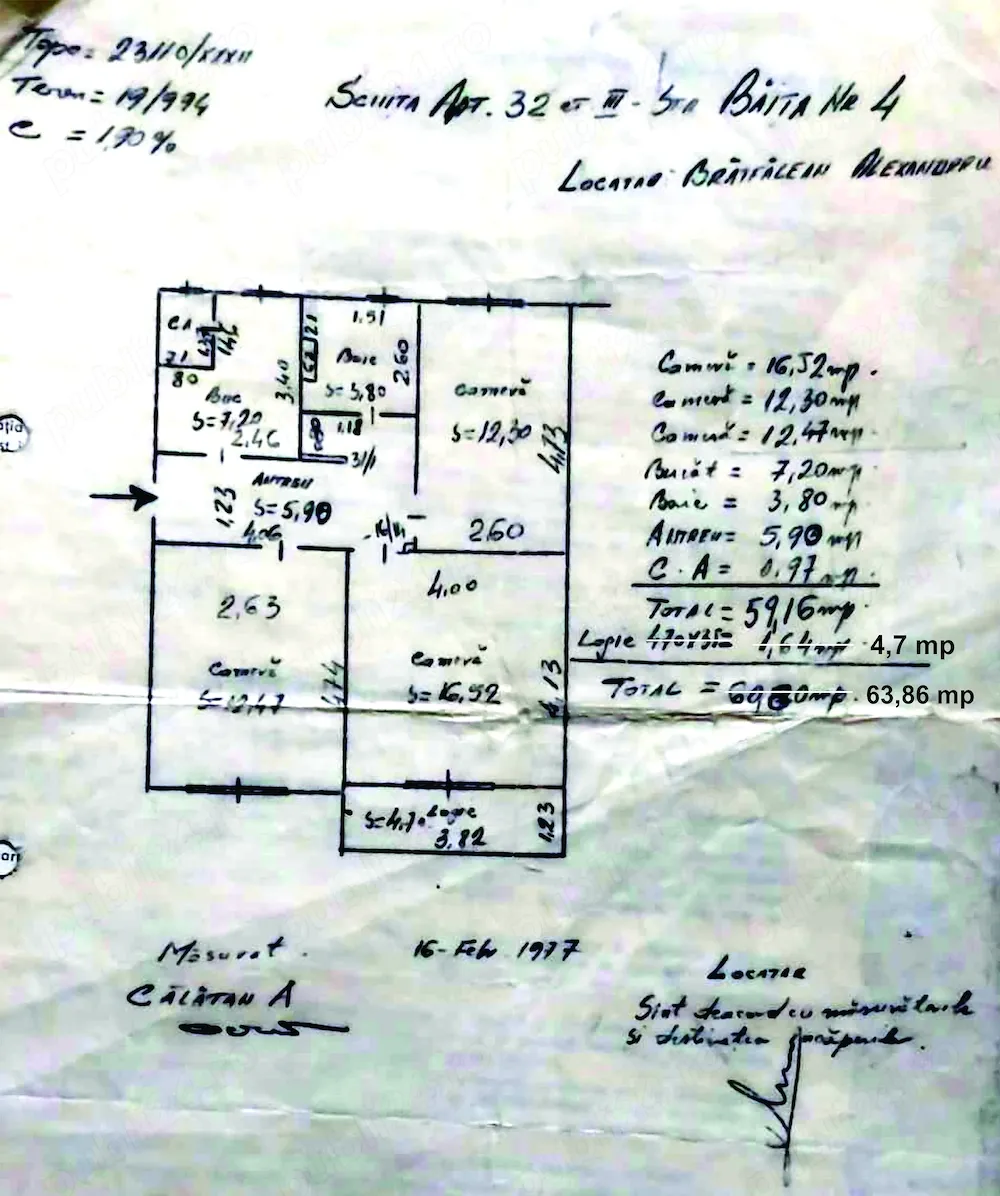 Topo = 23110/XXXII
Teren = 19/994
C = 1,90%
SCHITA APT. 32 ET III - STR BĂITA NR 4
LOCATAR BRĂTFĂLEAN ALEXANDRU
CA
71
80
1,51
Baie
S=3,80
2,60
Buc
S=7,20
2.46
3,40
1.18
Cameră
S=12,30
4,73
2.60
ANTREU
S=5,90
1,23
4,06
4,00
2,63
Cameră
S=12,47
4,74
Cameră
S=16,52
4,13
S=4,70 Logie
3,82
1,23
Cameră = 16,52 mp.
Cameră = 12,30 mp
Cameră = 12,47 mp
Bucăt = 7,20 mp
Baie = 3,80 mp
ANTREU = 5,90 mp
C.A = 0.97 mp.
TOTAL = 59,16 mp.
Logie 4,64 mp 4,7 mp
TOTAL = 63,86 mp
Măsurat.
CĂLĂTAN A
16-Feb. 1977
LOCATAR
Sînt deacord cu măsurătorile
si destinatia încăperilor.